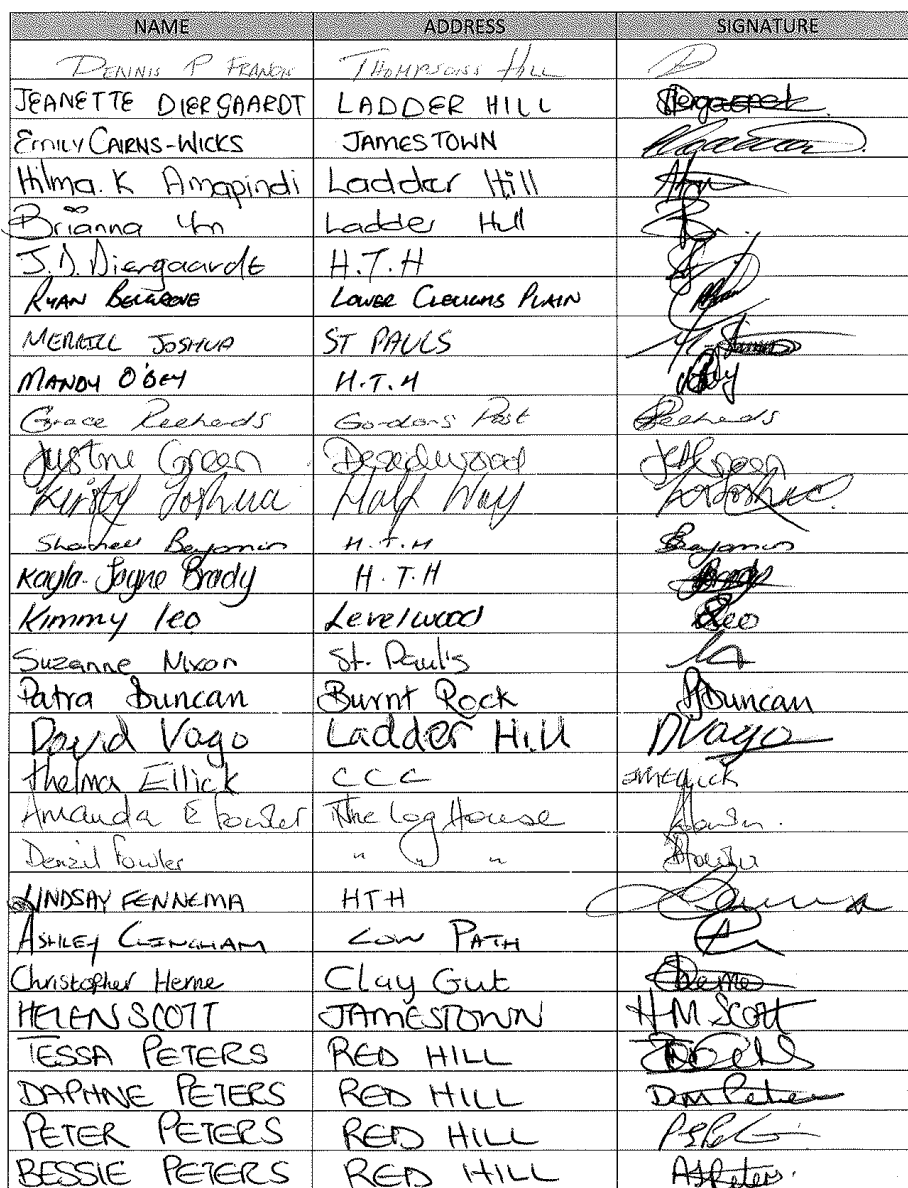 NAME ADDRESS SIGNATURE
DENNIS P FRANCIS THOMPSONS HILL
JEANETTE DIERGAARDT LADDER HILL Diergaardt
EMILY CAIRNS-WICKS JAMESTOWN
Hilma. K Amapindi Ladder Hill
Brianna Ladder Hill
J.D. Diergaardt H.T.H
RYAN BELGROVE LOWER CLEUGHS PLAIN
MERRILL JOSHUA ST PAULS
MANDY O'BEY H.T.H
Grace Gordons Post
Justine Green Deadwood
Kirsty Joshua Half Way
Benjamin H.T.H Benjamin
Kayla-Jayne Brady H.T.H Brady
Kimmy leo Levelwood Leo
Suzanne Nixon St. Paul's
Patra Duncan Burnt Rock PJDuncan
David Vago Ladder Hill DVago
Thelma Ellick CCC
Amanda E Fowler The Log House
Denzil Fowler " " "
LINDSAY FENNEMA HTH
ASHLEY CLINGHAM LOW PATH
Christopher Herne Clay Gut CHerne
HELEN SCOTT JAMESTOWN HM Scott
TESSA PETERS RED HILL
DAPHNE PETERS RED HILL DM Peters
PETER PETERS RED HILL
BESSIE PETERS RED HILL Peters.